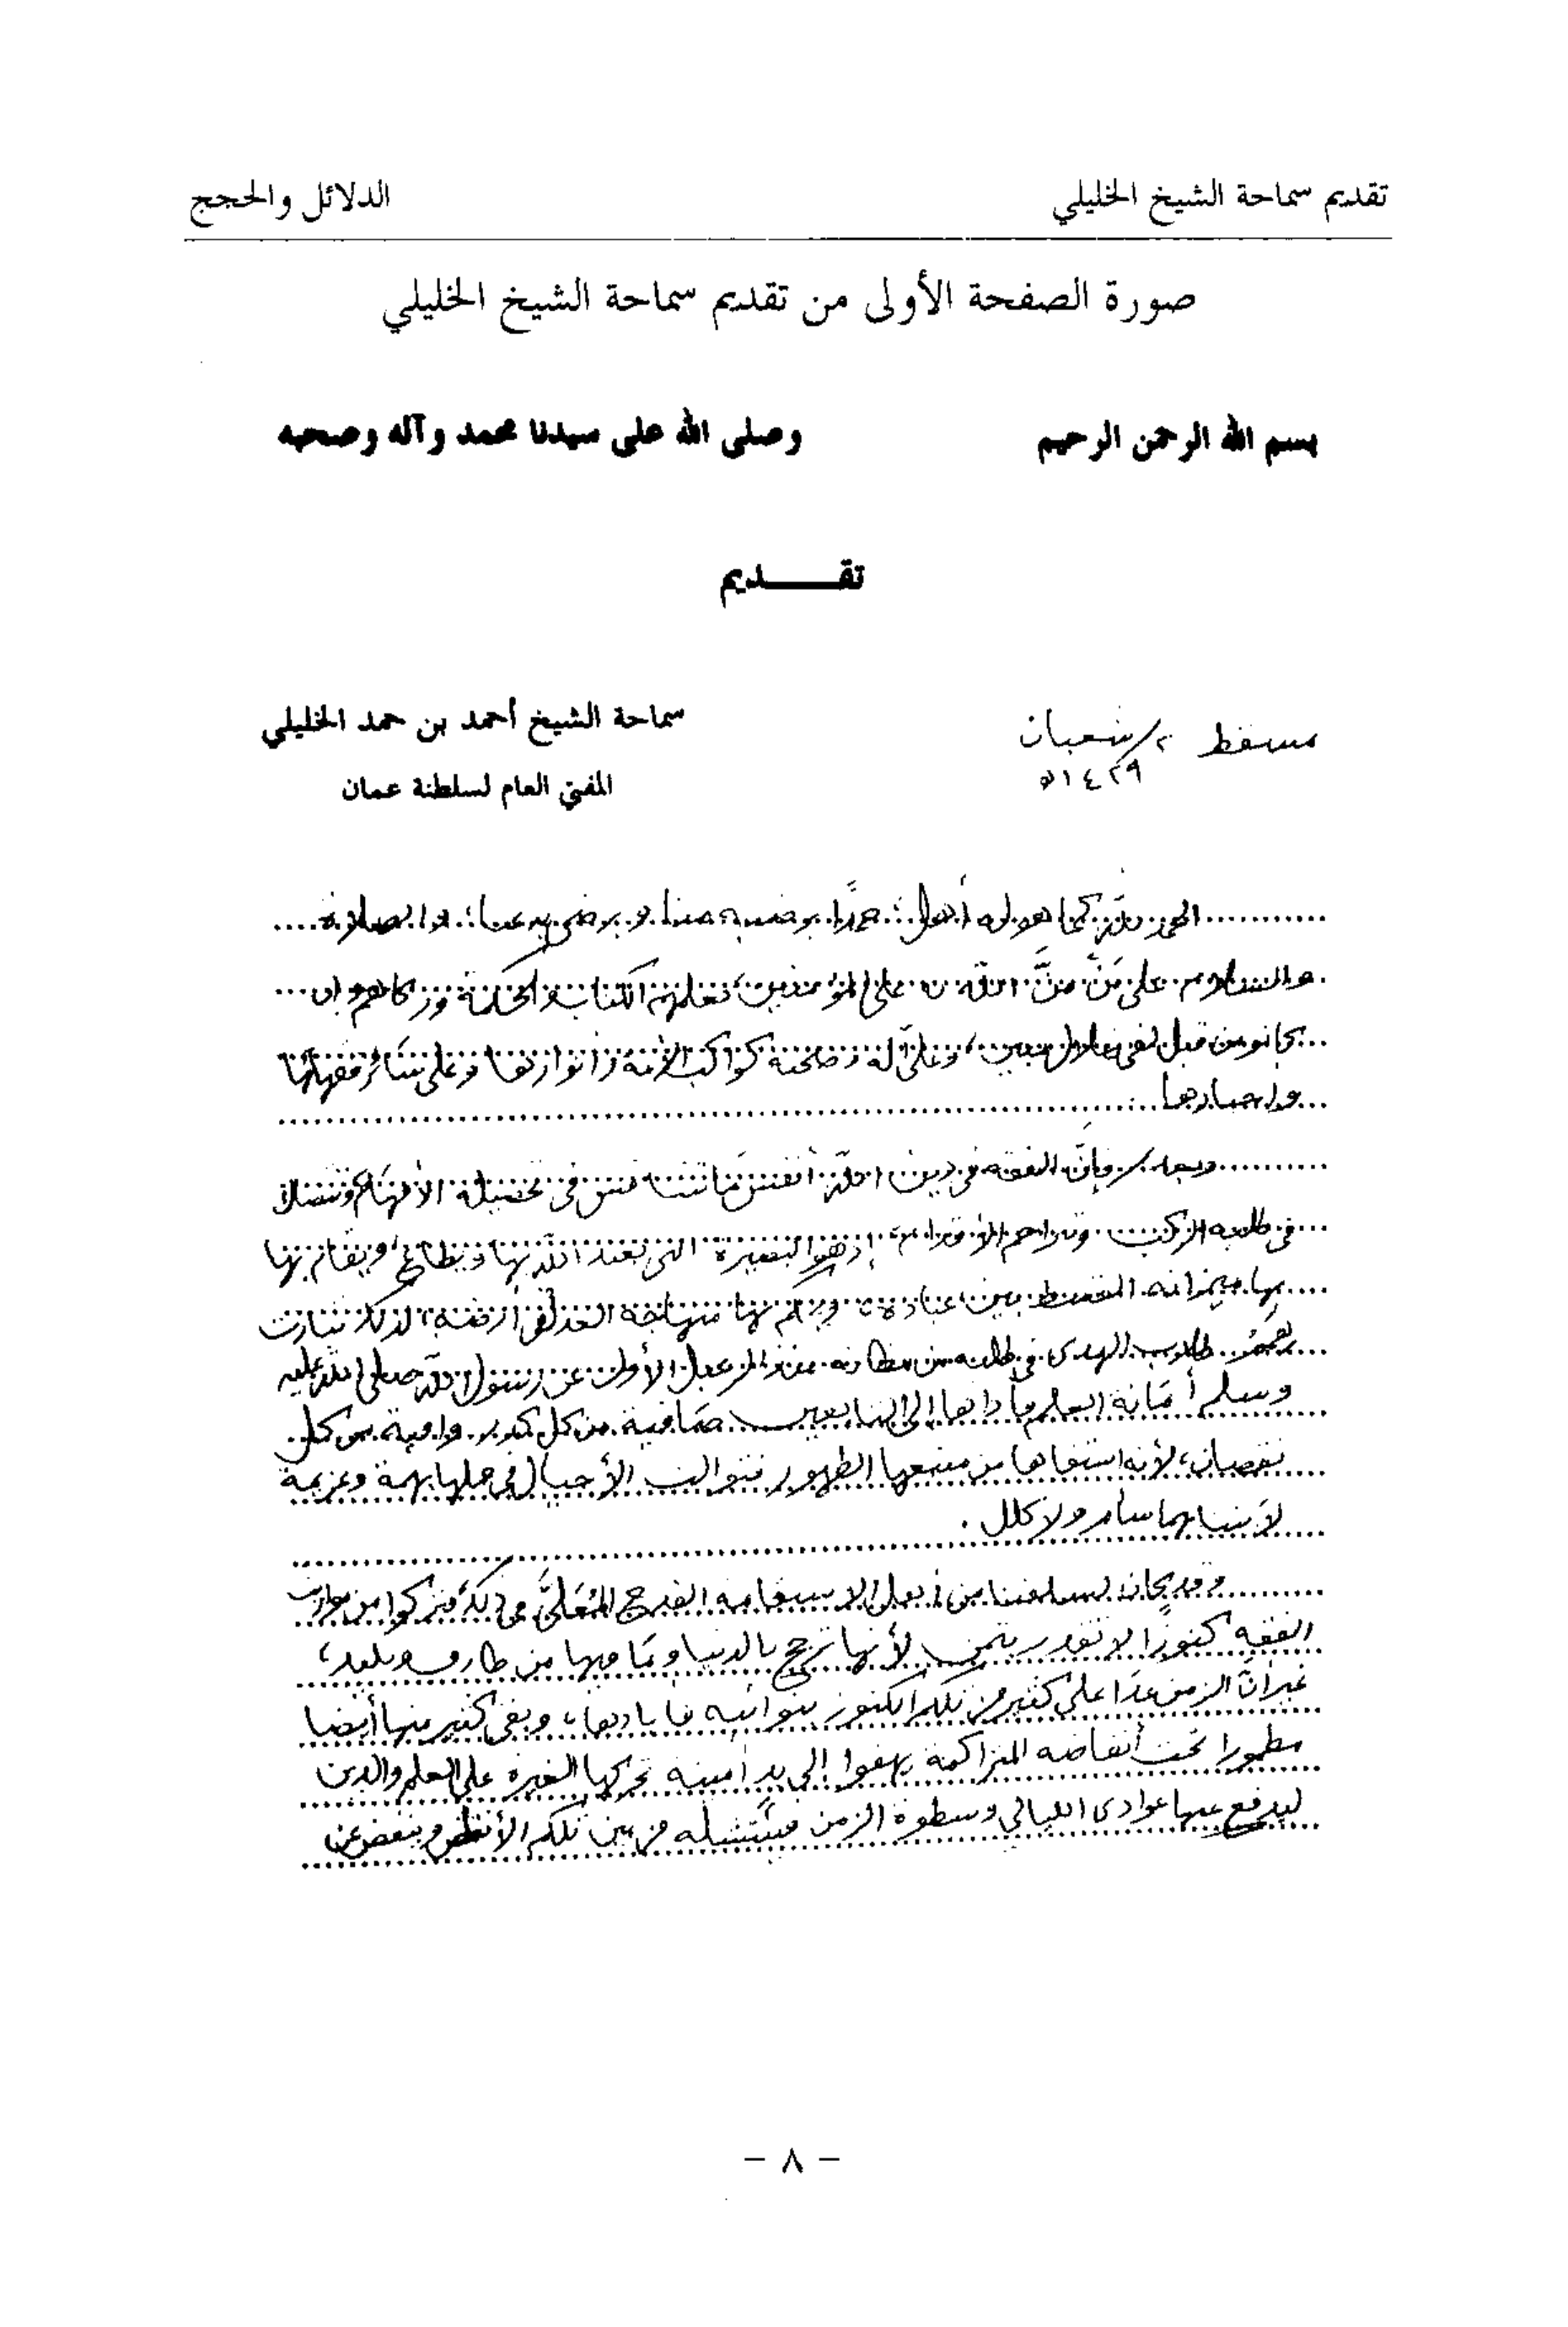 تقديم سماحة الشيخ الخليلي
الدلائل والحجج
صورة الصفحة الأولى من تقديم سماحة الشيخ الخليلي
بسم الله الرحمن الرحيم
وصلى الله على سيدنا محمد وآله وصحبه
تقـــــديم
سماحة الشيخ أحمد بن حمد الخليلي
مسقط ٢/شعبان
المفتي العام لسلطنة عمان
١٤٢٩ه
الحمد لله كما هو له أهل، حمدًا يرضيه منا ويرضى به عنا، والصلاة
والسلام على مَن مَنَّ الله به على المؤمنين، فعلمهم الكتاب والحكمة وزكاهم وإن
كانوا من قبل لفي ضلال مبين، وعلى آله وصحبه كواكب الأمة وأنوارها وعلى سائر فقهائها
وأحبارها
وبعد، فإن الفقه في دين الله أنفس ما تتنافس في تحصيله الأفهام وتتصلك
في طلبه الركب وتزاحم الأقدام، إذ هو البصيرة التي يعبد الله بها ويطاع، ويقام بها
بها ميزانه القسط بين عباده، و بها منهاجه العدل في أرضه، لذلك تبارت
همم طلاب الهدى في طلبه من مظانه، منذ الرعيل الأول عن رسول الله صلى الله عليه
وسلم أمانة العلم فأداها إلى التابعين صافية من كل كدر وافية من كل
نقصان، لأنه استقاها من منبعها الطهور فتوالت الأجيال في حملها بهمة وعزيمة
لا ينتابهما سأم ولا كلل.
وقد كان لسلفنا من أهل الاستقامة القدح المُعَلَّى في ذلك، فتركوا من موارث
الفقه كنوزًا لا تقدر بثمن لأنها ترجح بالدنيا وما فيها من طارف وتليد،
غير أنّ الزمن عدا على كثير من تلك الكنوز بنوائبه فأبادها، وبقي كثير منها أيضا
مطمورا تحت أنقاضه المتراكمة يهفوا إلى يد أمينة تحركها الغيرة على العلم والدين
ليدفع عنها عوادى الليالي وسطوة الزمن فتنتشله من بين تلكم الأنقاض وينفض عن
– ٨ –